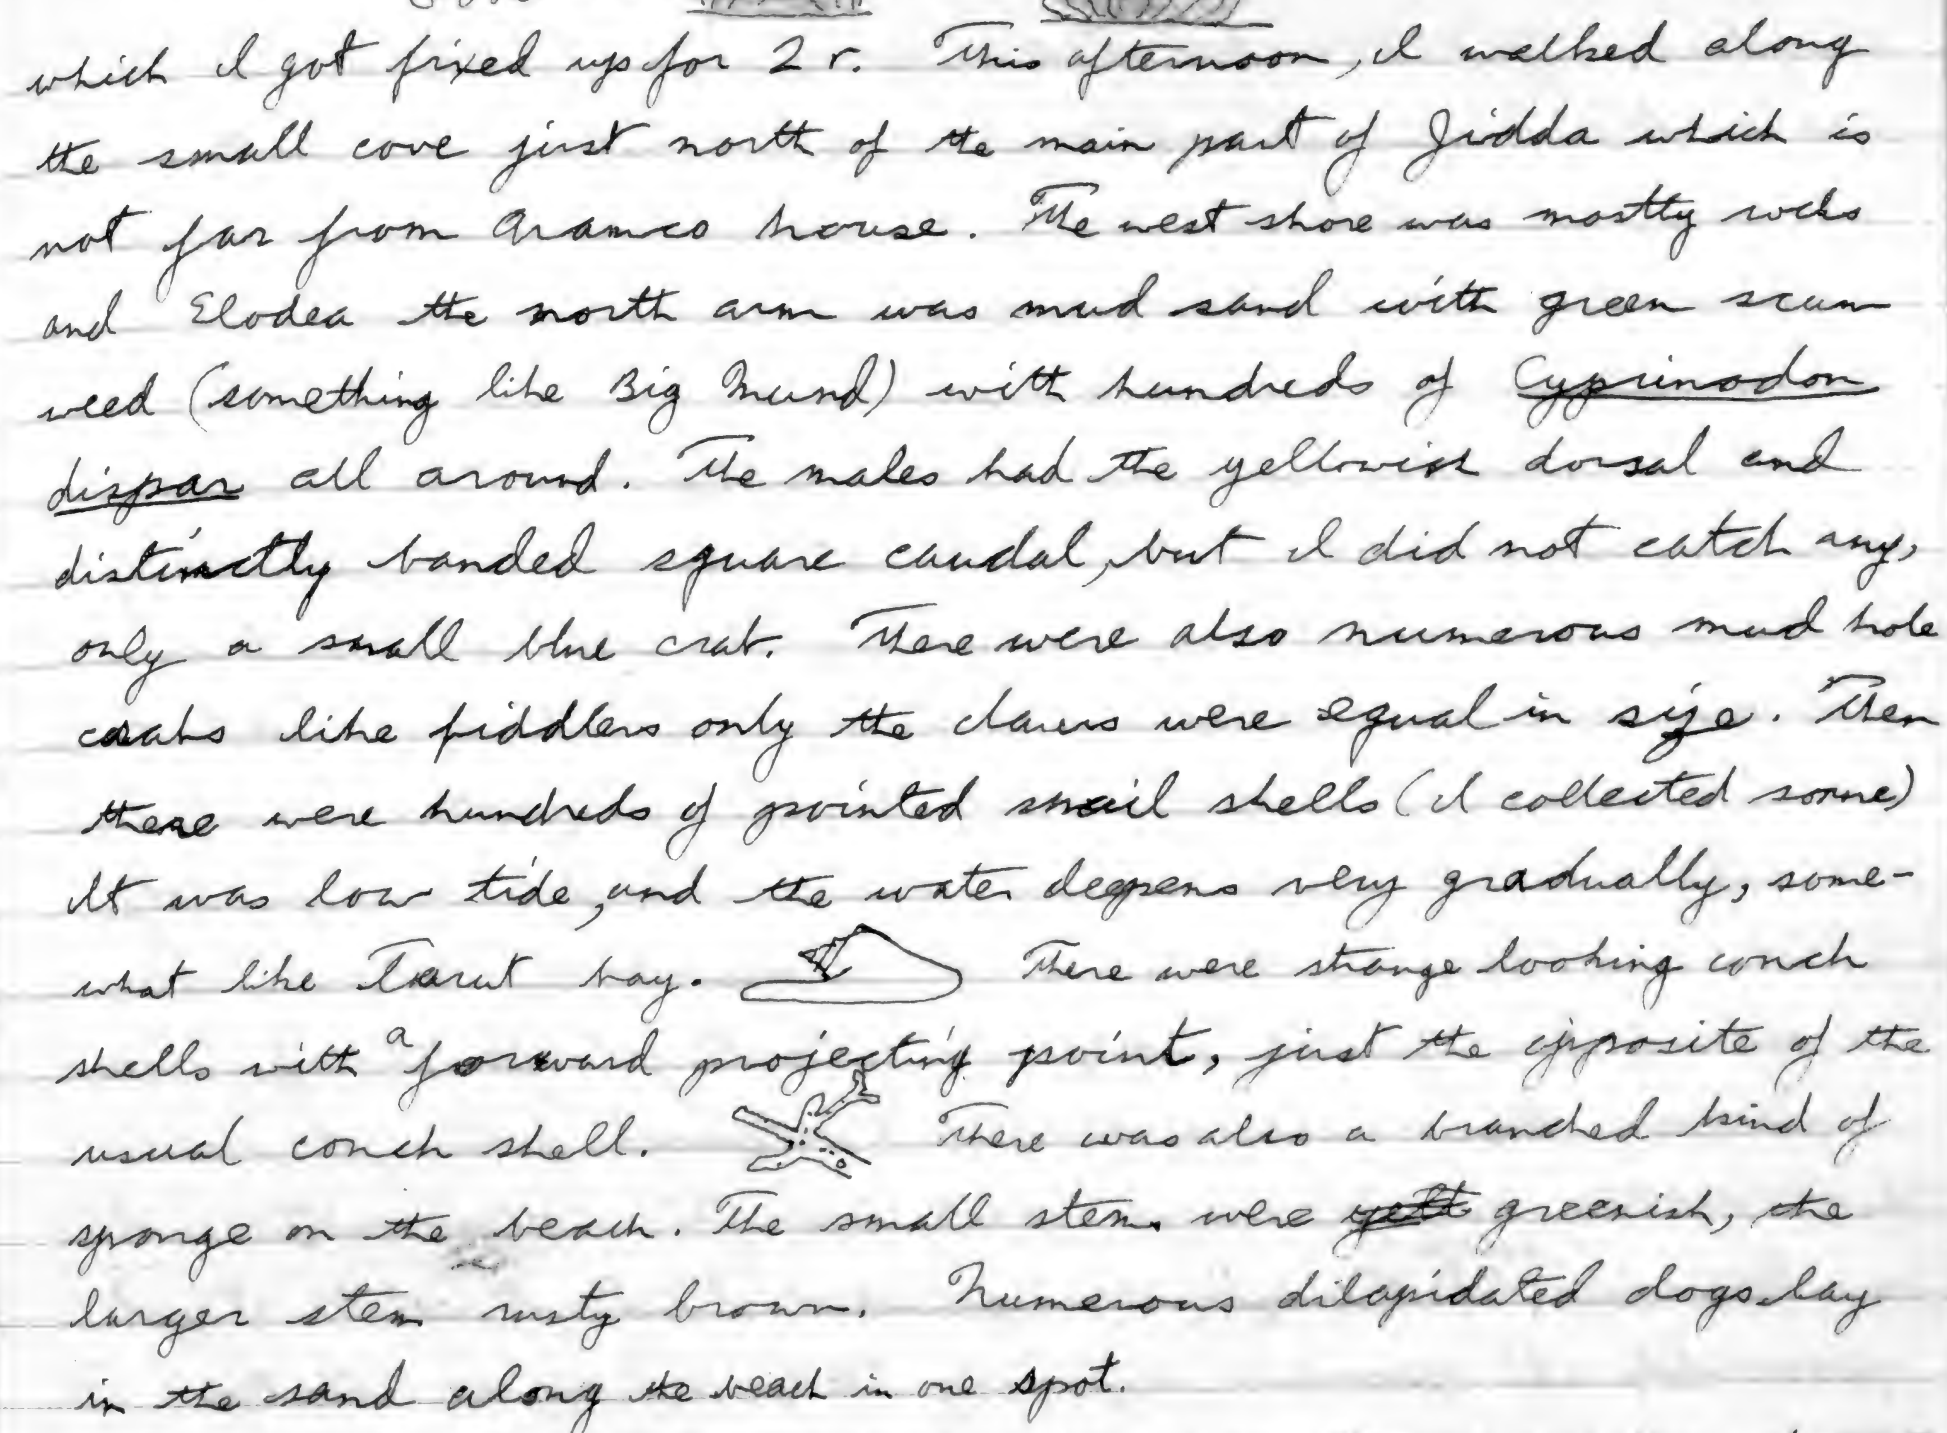 which I got fixed up for 2 r. This afternoon, I walked along
the small cove just north of the main part of Jidda which is
not far from Aramco house. The west shore was mostly rocks
and Elodea the north arm was mud sand with green scum
weed (something like Big Mund) with hundreds of Cyprinodon
dispar all around. The males had the yellowish dorsal and
distinctly banded square caudal, but I did not catch any,
only a small blue crab. There were also numerous mud hole
crabs like fiddlers only the claws were equal in size. Then
there were hundreds of pointed snail shells (I collected some)
It was low tide, and the water deepens very gradually, some-
what like Tarut bay. There were strange looking conch
shells with a forward projecting point, just the opposite of the
usual conch shell. There was also a branched kind of
sponge on the beach. The small stems were yell greenish, the
larger stem rusty brown. Numerous dilapidated dogs lay
in the sand along the beach in one spot.